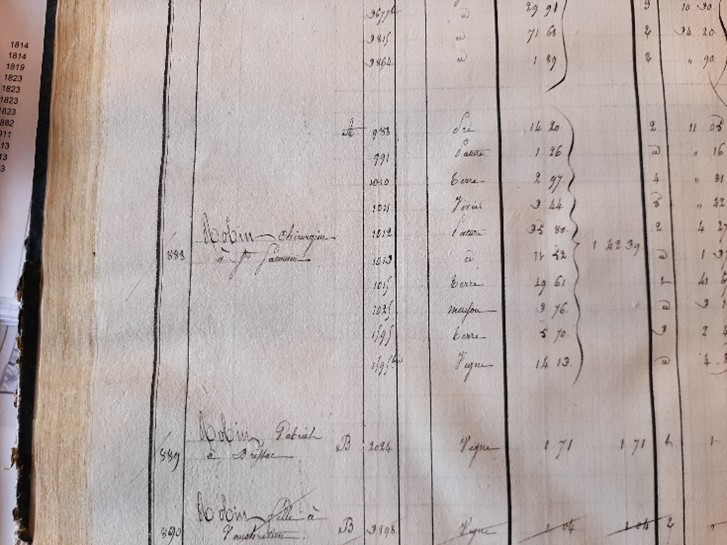 1814
1814
1819
1823
1823
1823
1823
882
911
13
13
3
3677 bis d 29 91 3 10 30
3815 d 71 68 2 34 20
3864 d 1 89 2 " 90
A 988 Pré 14 20 2 11 05
991 Pature 1 26 d " 16
1010 Terre 2 97 4 " 31
1011 3 44 5 " 22
888 Robin chirurgien 1012 Pature 35 80 1 42 39 2 4 27
à St 1013 d 18 52 d 1
1015 Terre 49 61 2 41
1035 maison 3 76 d
1595 Terre 5 70 3 2
1595 bis Vigne 14 13 d 4
889 Robin Gabriel
à Brissac B 2024 Vigne 1 71 1 71 2 1
890 Robin fille à
Vauchrétien B 3398 Vigne 1 04 1 04 2